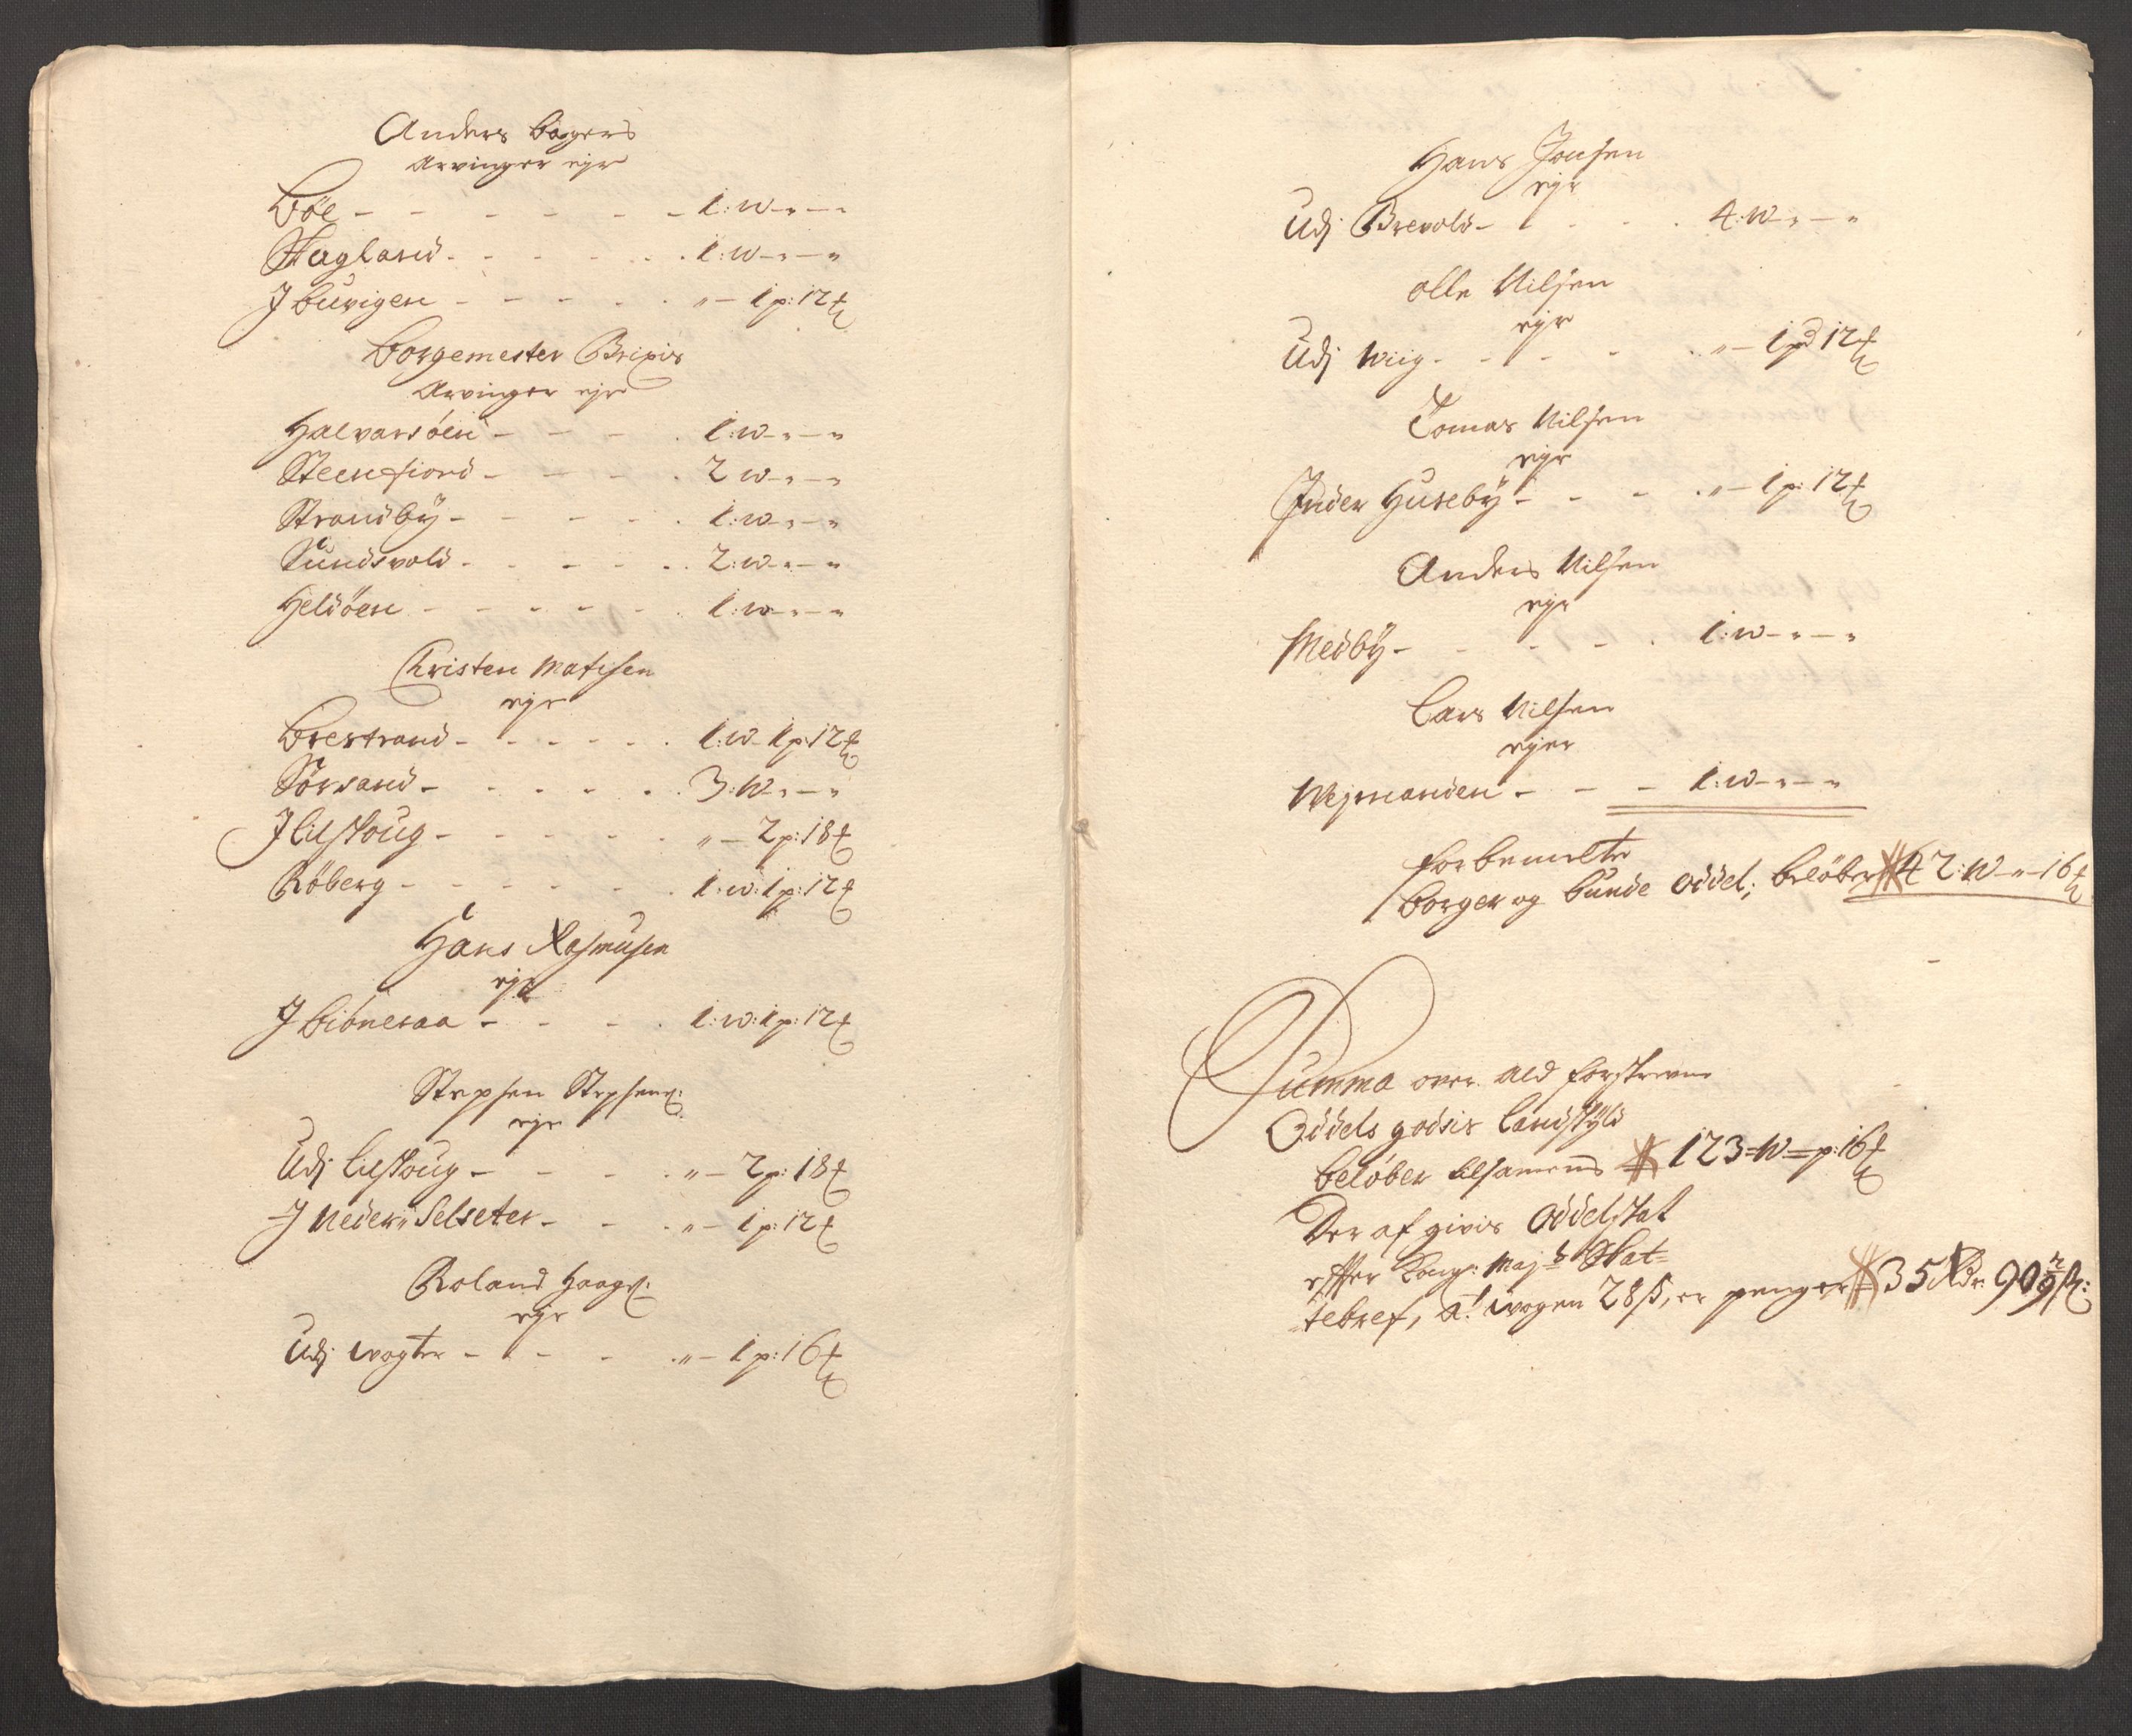 Anders Baggers
Arvinger ejr
Böe - - - - - - 1: w - „ - „
Skagland - - - - - 1: w - „ - „
J buvigen - - - - - „ - 1 p: 12 ℔
Borgemester Brixis
Arvinger ejr
Halvarsöen - - - - 1: w - „ - „
Steensfiord - - - - 2 w - „ - „
Strandbÿ - - - - - 1: w - „ - „
Sundsvold - - - - - 2: w - „ - „
Heldöen - - - - - - 1: w - „ - „
Christen Matisen
ejr
Brestrand - - - - - 1: w - 1 p: 12 ℔
Sörsand - - - - - - 3: w - „ - „
J Lilskoug - - - - - „ - 2 p: 18 ℔
Röberg - - - - - - 1: w: 1 p: 12 ℔
Hans Rasmusen
ejr
J Biöneraa - - - - 1: w: 1 p: 12 ℔
Stephen Stephens:
ejr
Udj Lilskoug - - - - „ - 2 p: 18 ℔
J Neder Selseter - - - „ - 1 p: 12 ℔
Roland Haags:
ejr
Udj wogter - - - - „ - 1 p: 16 ℔
Hans Jonsen
ejr
Udj Brevold - - - - 4: w - „ - „
Olle Nilsen
ejr
Udj Wiig - - - - - „ - 1 pd 12 ℔
Tomas Nilsen
ejr
Inder Husebÿ - - - - „ - 1 p: 12 ℔
Anders Nilsen
ejr
Medbÿ - - - - - 1: w - „ - „
Lars Nilsen
ejer
Wejmanden - - - 1: w - „ - „
forbemelte
borger og bunde oddel; belöber 42: w - „ - 16 ℔
Summa over ald forskrevne
Oddels godsis Landskÿld
belöber tilsamens 123 = w = p: 16 ℔
Der af givis Oddelskat
effter Kong: Maj: Skat=
tebref, a! wogen 28 ß, er penger 35 Rdr. 90 2/9 ß: